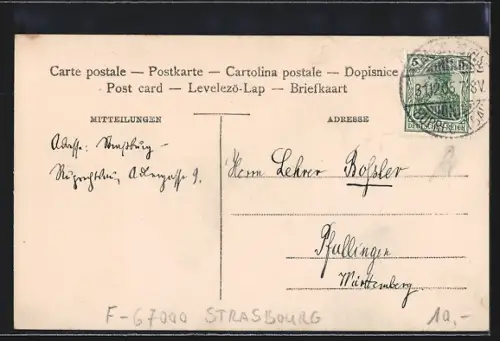 Carte postale — Postkarte — Cartolina postale — Dopisnice
Post card — Levelezö-Lap — Briefkaart
MITTEILUNGEN
ADRESSE
5
31.12.05
DEUTSCHES REICH
Adresse: Straßburg –
Ruprechtsau, Adlergasse 9.
Herrn Lehrer Boßler
Pfullingen
Württemberg
F-67000 STRASBOURG
10,-